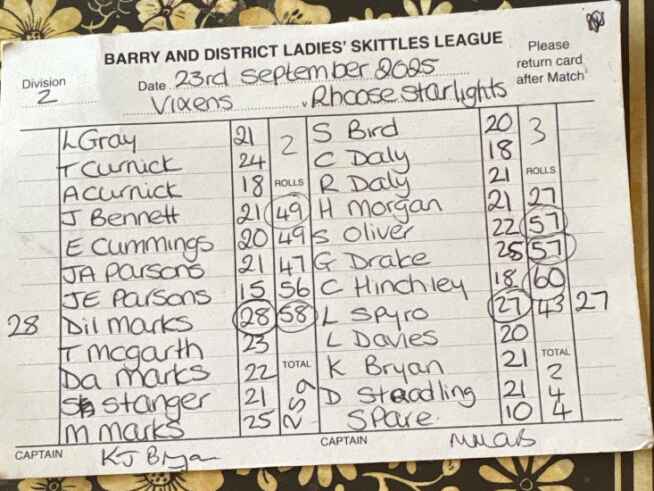 BARRY AND DISTRICT LADIES' SKITTLES LEAGUE
Please return card after Match
Division 2
Date 23rd September 2025
Vixens v Rhoose Starlights
L Gray 21 2 S Bird 20 3
T Curnick 24 C Daly 18
A Curnick 18 ROLLS R Daly 21 ROLLS
J Bennett 21 49 H Morgan 21 27
E Cummings 20 49 S Oliver 22 57
JA Parsons 21 47 G Drake 25 57
JE Parsons 15 56 C Hinchley 18 60
28 Dil Marks 28 58 L Spyro 27 43 27
T McGarth 23 L Davies 20
Da Marks 22 TOTAL K Bryan 21 TOTAL
Stanger 21 259 D Steadling 21 244
M Marks 25 Spare. 10
CAPTAIN KJ Bryan CAPTAIN